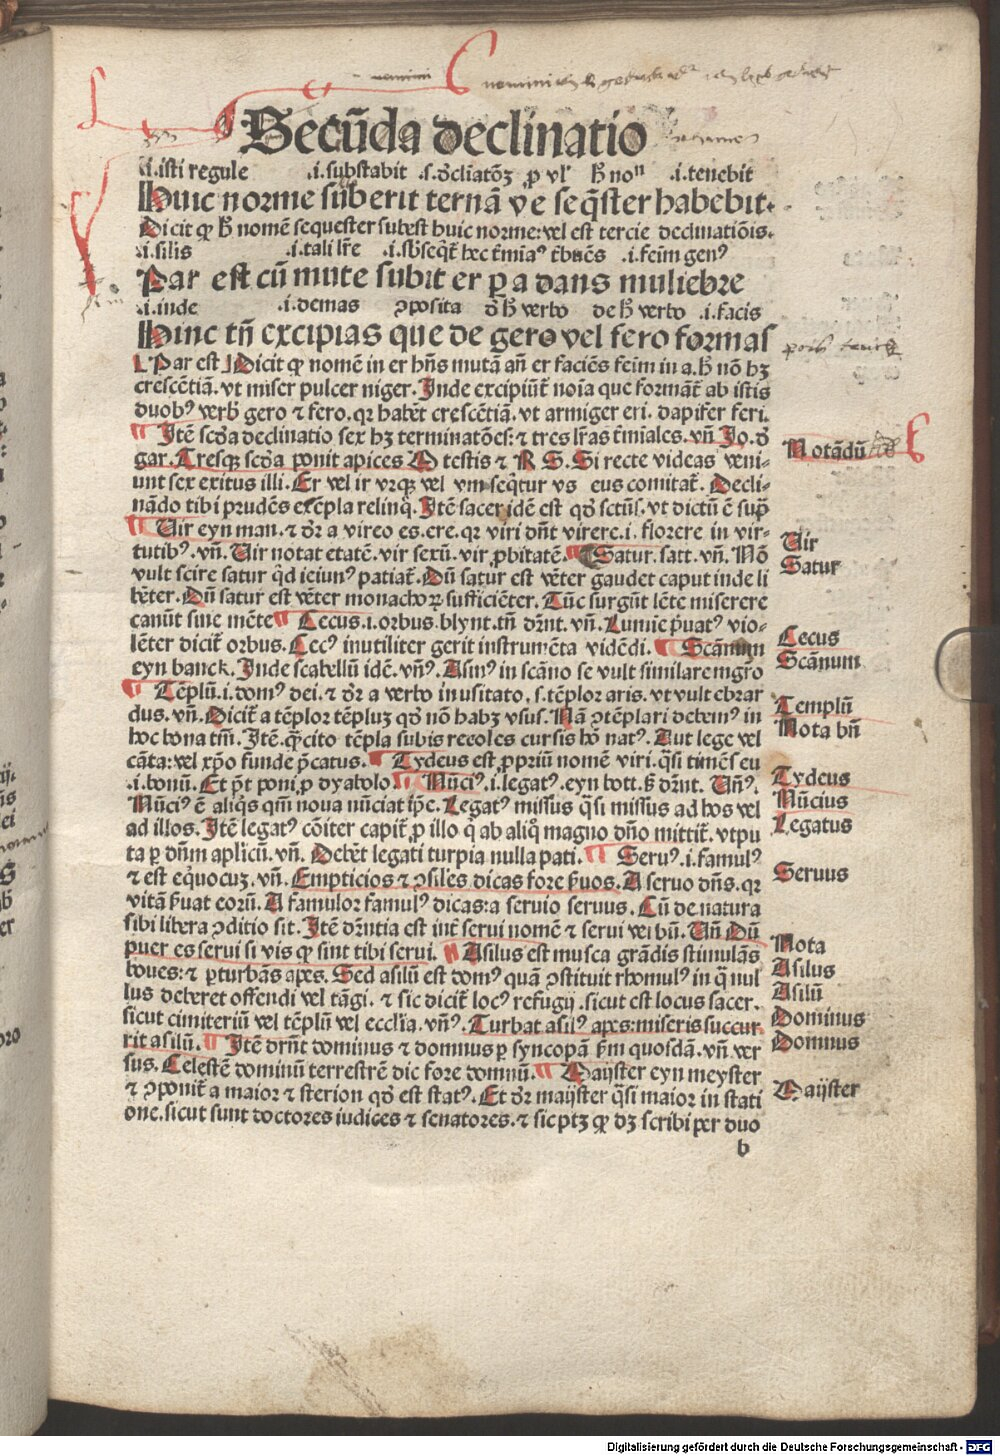 Secūda declinatio
.i. isti regule .i. substabit .s. dcliatōꝫ ꝓ vl' hͦ noⁿ .i. tenebit
Huic norme suberit ternā ve seq̄ster habebit.
Dicit ꝙ hͦ nomē sequester subest huic norme: vel est tercie declinatiōis.
.i. silis .i. tali lr̄e .i. sb̄seq̄t᷑ hec t̄miaꝰ t̄huēs .i. feīm genꝰ
Par est cū mute subit er ꝑ a dans muliebre
.i. inde .i. demas ꝯposita d̄ hͦ verbo de hͦ verbo .i. facis
Hinc tn̄ excipias que de gero vel fero formas
Par est Dicit ꝙ nomē in er hn̄s mutā an̄ er faciēs feīm in a. hͦ nō hꝫ
crescētiā. vt miser pulcer niger. Inde excipiūt᷑ noīa que formāt᷑ ab istis
duobꝰ verb̄ gero ⁊ fero. qꝛ habēt crescētiā. vt armiger eri. dapifer feri.
Itē scd̄a declinatio sex hꝫ terminatōes: ⁊ tres lr̄as t̄miales. vn̄ Jo. d̄
gar. Tresqꝫ scd̄a ponit apices M testis ⁊ R S. Si recte videas veni-
unt sex exitus illi. Er vel ir vꝛqꝫ vel vm seq̄tur vs eus comitat᷑. Decli-
nādo tibi prudēs exēpla relinq̄. Itē sacer idē est qd̄ sctūs. vt dictū ē sup̄
Vir eyn man. ⁊ dr̄ a vireo es. ere. qꝛ viri dn̄t virere. i. florere in vir-
tutibꝰ. vn̄. Vir notat etatē. vir sexū. vir ꝓbitatē. Satur. satt. vn̄. Nō
vult scire satur qͥd ieiunꝰ patiat᷑. Dū satur est vēter gaudet caput inde li
bēter. Dū satur est vēter monachoꝝ sufficiēter. Tūc surgūt lēte miserere
canūt sine mēte Cecus. i. orbus. blynt. tn̄ dr̄nt. vn̄. Lumīe p̄uatꝰ vio-
lēter dicit᷑ orbus. Cecꝰ inutiliter gerit instrumēta vidēdi. Scānum
eyn banck. Inde scabellū idē. vn̄ꝰ. Asinꝰ in scāno se vult similare mgr̄o
Tēplū. i. domꝰ dei. ⁊ dr̄ a verbo inusitato. s. tēplor aris. vt vult ebrar
dus. vn̄. Dicit᷑ a tēplor tēpluꝫ qd̄ nō habꝫ vsus. Nā ꝯtēplari debemꝰ in
hoc bona tm̄. Itē. q̄ cito tēpla subis recoles cur sis hō natꝰ. Aut lege vel
cāta: vel xp̄o funde p̄catus. Tydeus est ꝓpriū nomē viri. q̄si timēs eu
.i. bonū. Et p̄t poni ꝓ dyabolo Nūciꝰ. i. legatꝰ. eyn bott. s̄ dr̄nt. Vn̄ꝰ.
Nūciꝰ ē aliq̄s qm̄ noua nūciat ip̄e. Legatꝰ missus q̄si missus ad hos vel
ad illos. Itē legatꝰ cōiter capit᷑ ꝓ illo q̄ ab aliq̄ magno dn̄o mittit᷑. vtpu
ta ꝑ dn̄m aplicū. vn̄. Debēt legati turpia nulla pati. Seruꝰ. i. famulꝰ
⁊ est eq̄uocuꝫ. vn̄. Empticios ⁊ ꝯsiles dicas fore s̄uos. A seruo dn̄s. qꝛ
vitā s̄uat eorū. A famulor famulꝰ dicas: a seruio seruus. Cū de natura
sibi libera ꝯditio sit. Itē dr̄ntia est int̄ serui nomē ⁊ serui vei bū. Vn̄ Dū
puer es serui si vis ꝙ sint tibi serui. Asilus est musca grādis stimulās
boues: ⁊ ꝑturbās apes. Sed asilū est domꝰ quā ꝯstituit rhomulꝰ in q̄ nul
lus deberet offendi vel tāgi. ⁊ sic dicit᷑ locꝰ refugij. sicut est locus sacer.
sicut cimiteriū vel tēplū vel eccl̄ia. vn̄ꝰ. Turbat asilꝰ apes: miseris succur
rit asilū. Itē dr̄nt dominus ⁊ domnus ꝑ syncopā s̄m quosdā. vn̄ ver
sus. Celestē dominū terrestrē dic fore domnū. Maijster eyn meyster
⁊ ꝯponit᷑ a maior ⁊ sterion qd̄ est statꝰ. Et dr̄ maijster q̄si maior in stati
one. sicut sunt doctores iudices ⁊ senatores. ⁊ sic ptꝫ ꝙ dꝫ scribi per duo
b
Notādū
Vir
Satur
Cecus
Scānum
Templū
Nota bn̄
Tydeus
Nūcius
Legatus
Seruus
Nota
Asilus
Asilū
Dominus
Domnus
Maijster
Digitalisierung gefördert durch die Deutsche Forschungsgemeinschaft - DFG